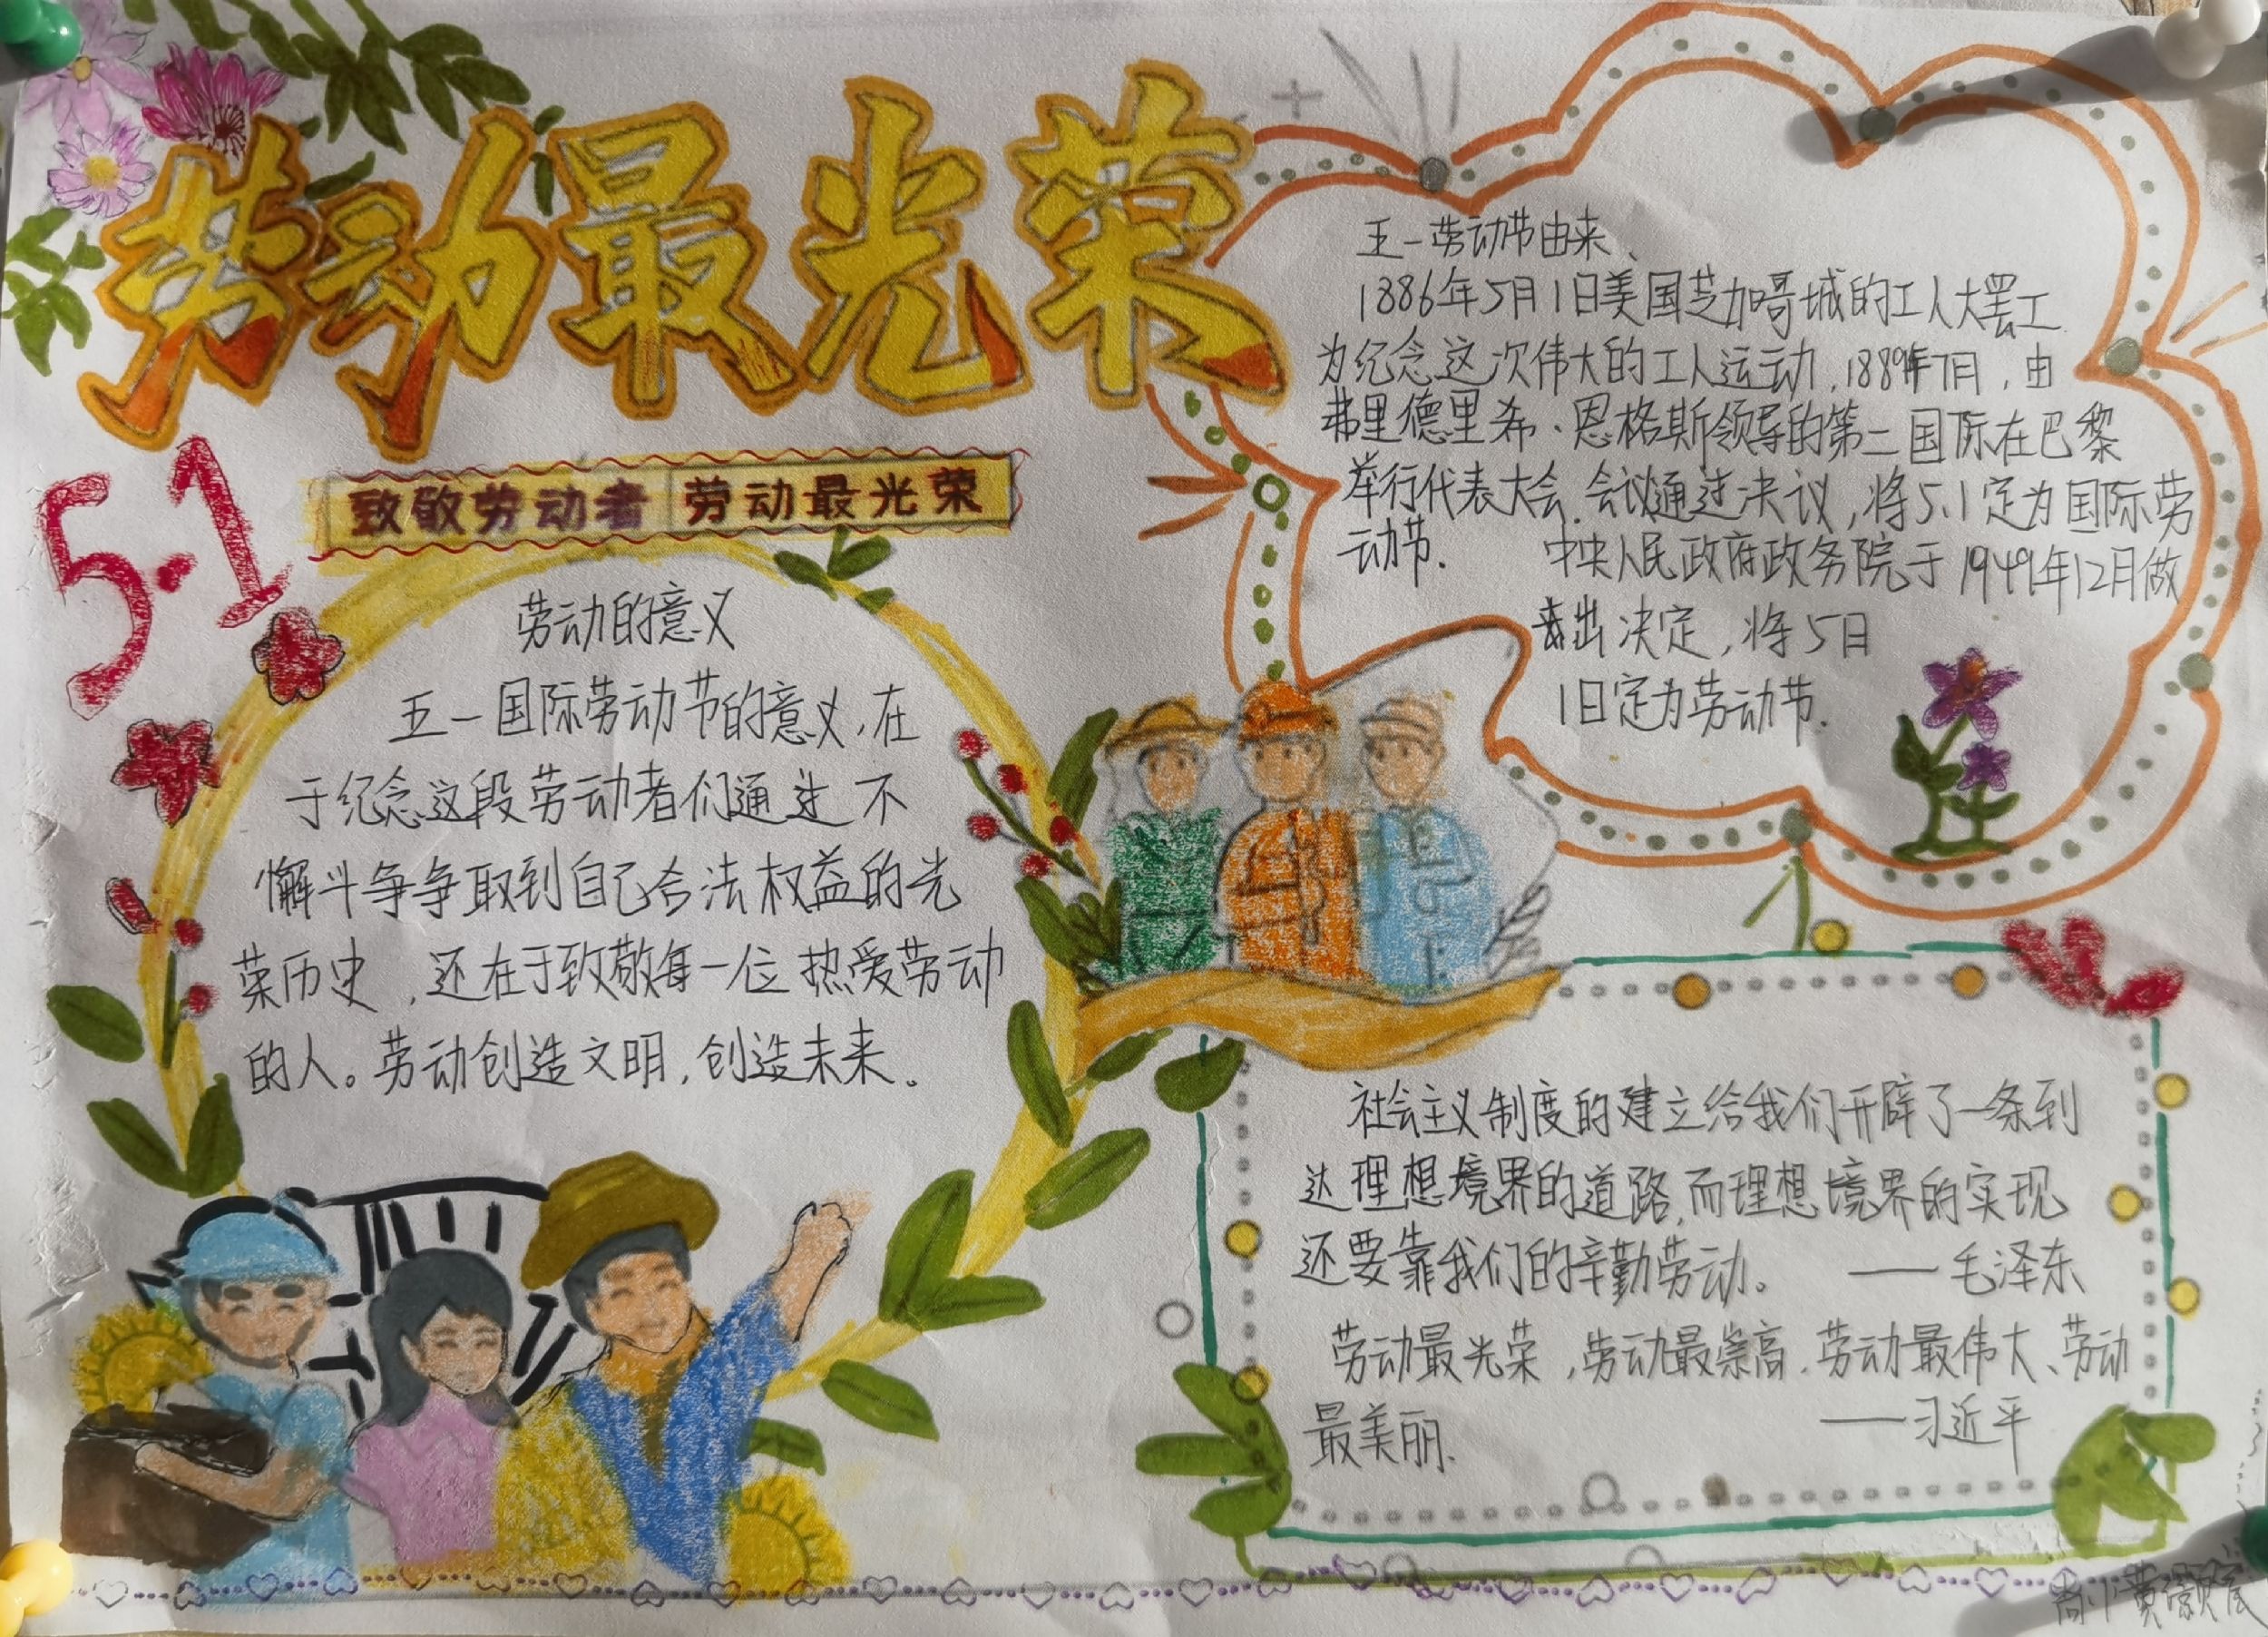 劳动最光荣
5.1
致敬劳动者 劳动最光荣
劳动的意义
五一国际劳动节的意义,在
于纪念这段劳动者们通过不
懈斗争争取到自己合法权益的光
荣历史,还在于致敬每一位热爱劳动
的人。劳动创造文明,创造未来。
五一劳动节由来、
1886年5月1日美国芝加哥城的工人大罢工
为纪念这次伟大的工人运动,1889年7月,由
弗里德里希·恩格斯领导的第二国际在巴黎
举行代表大会.会议通过决议,将5.1定为国际劳
动节.
中央人民政府政务院于1949年12月做
出决定,将5日
1日定为劳动节.
社会主义制度的建立给我们开辟了一条到
达理想境界的道路,而理想境界的实现
还要靠我们的辛勤劳动。 ——毛泽东
劳动最光荣,劳动最崇高.劳动最伟大、劳动
最美丽. ——习近平